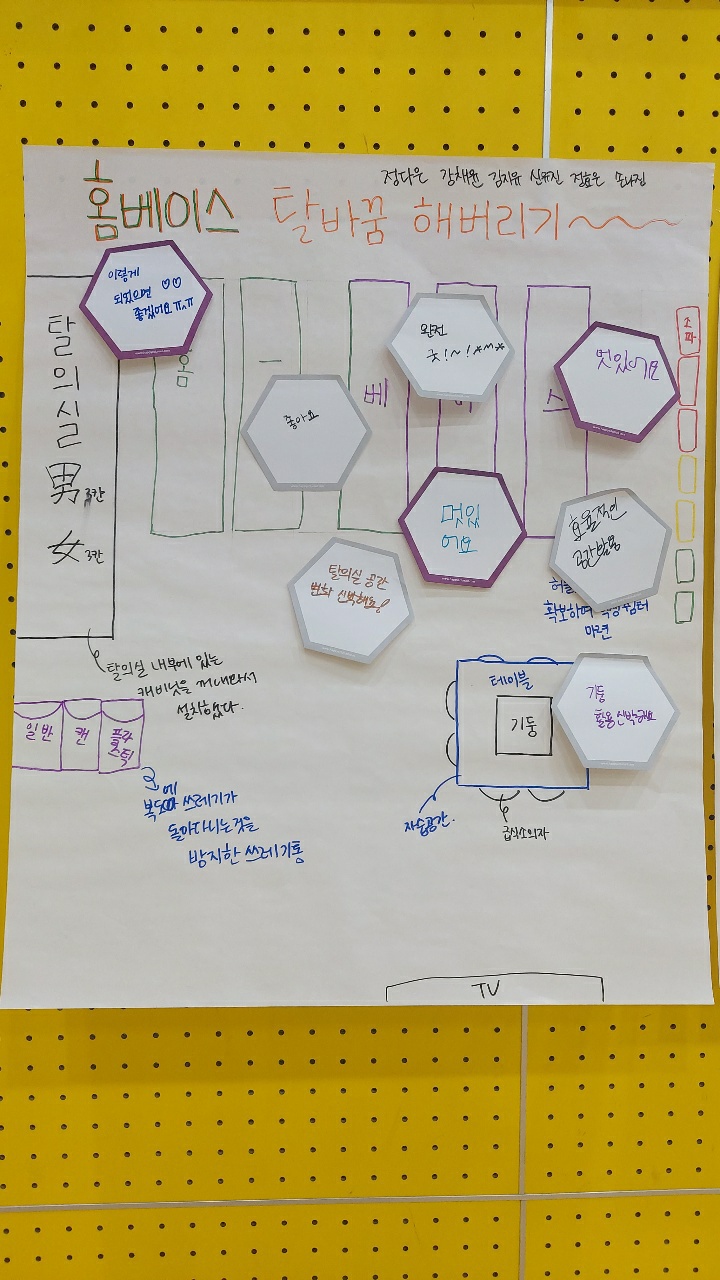 정다은 강채원 김지유 신유진 정효은 손나정
홈베이스 탈바꿈 해버리기~~~
이렇게
되었으면 ♡♡
좋겠어요 ㅠ^ㅠ
탈의실
男 3칸
女 3칸
홈
ㅡ
베
스
좋아요
완전
굿!~!
멋있어요
소파
멋있
어요
효율적인
공간활용
확보하며
마련
탈의실 공간
변화 신박해요!
탈의실 내부에 있는
캐비닛을 꺼내와서
설치하였다.
일반
캔
플라
스틱
복도에 쓰레기가
돌아다니는것을
방지한 쓰레기통
테이블
기둥
기둥
활용 신박해요
자습공간.
급식소의자
TV